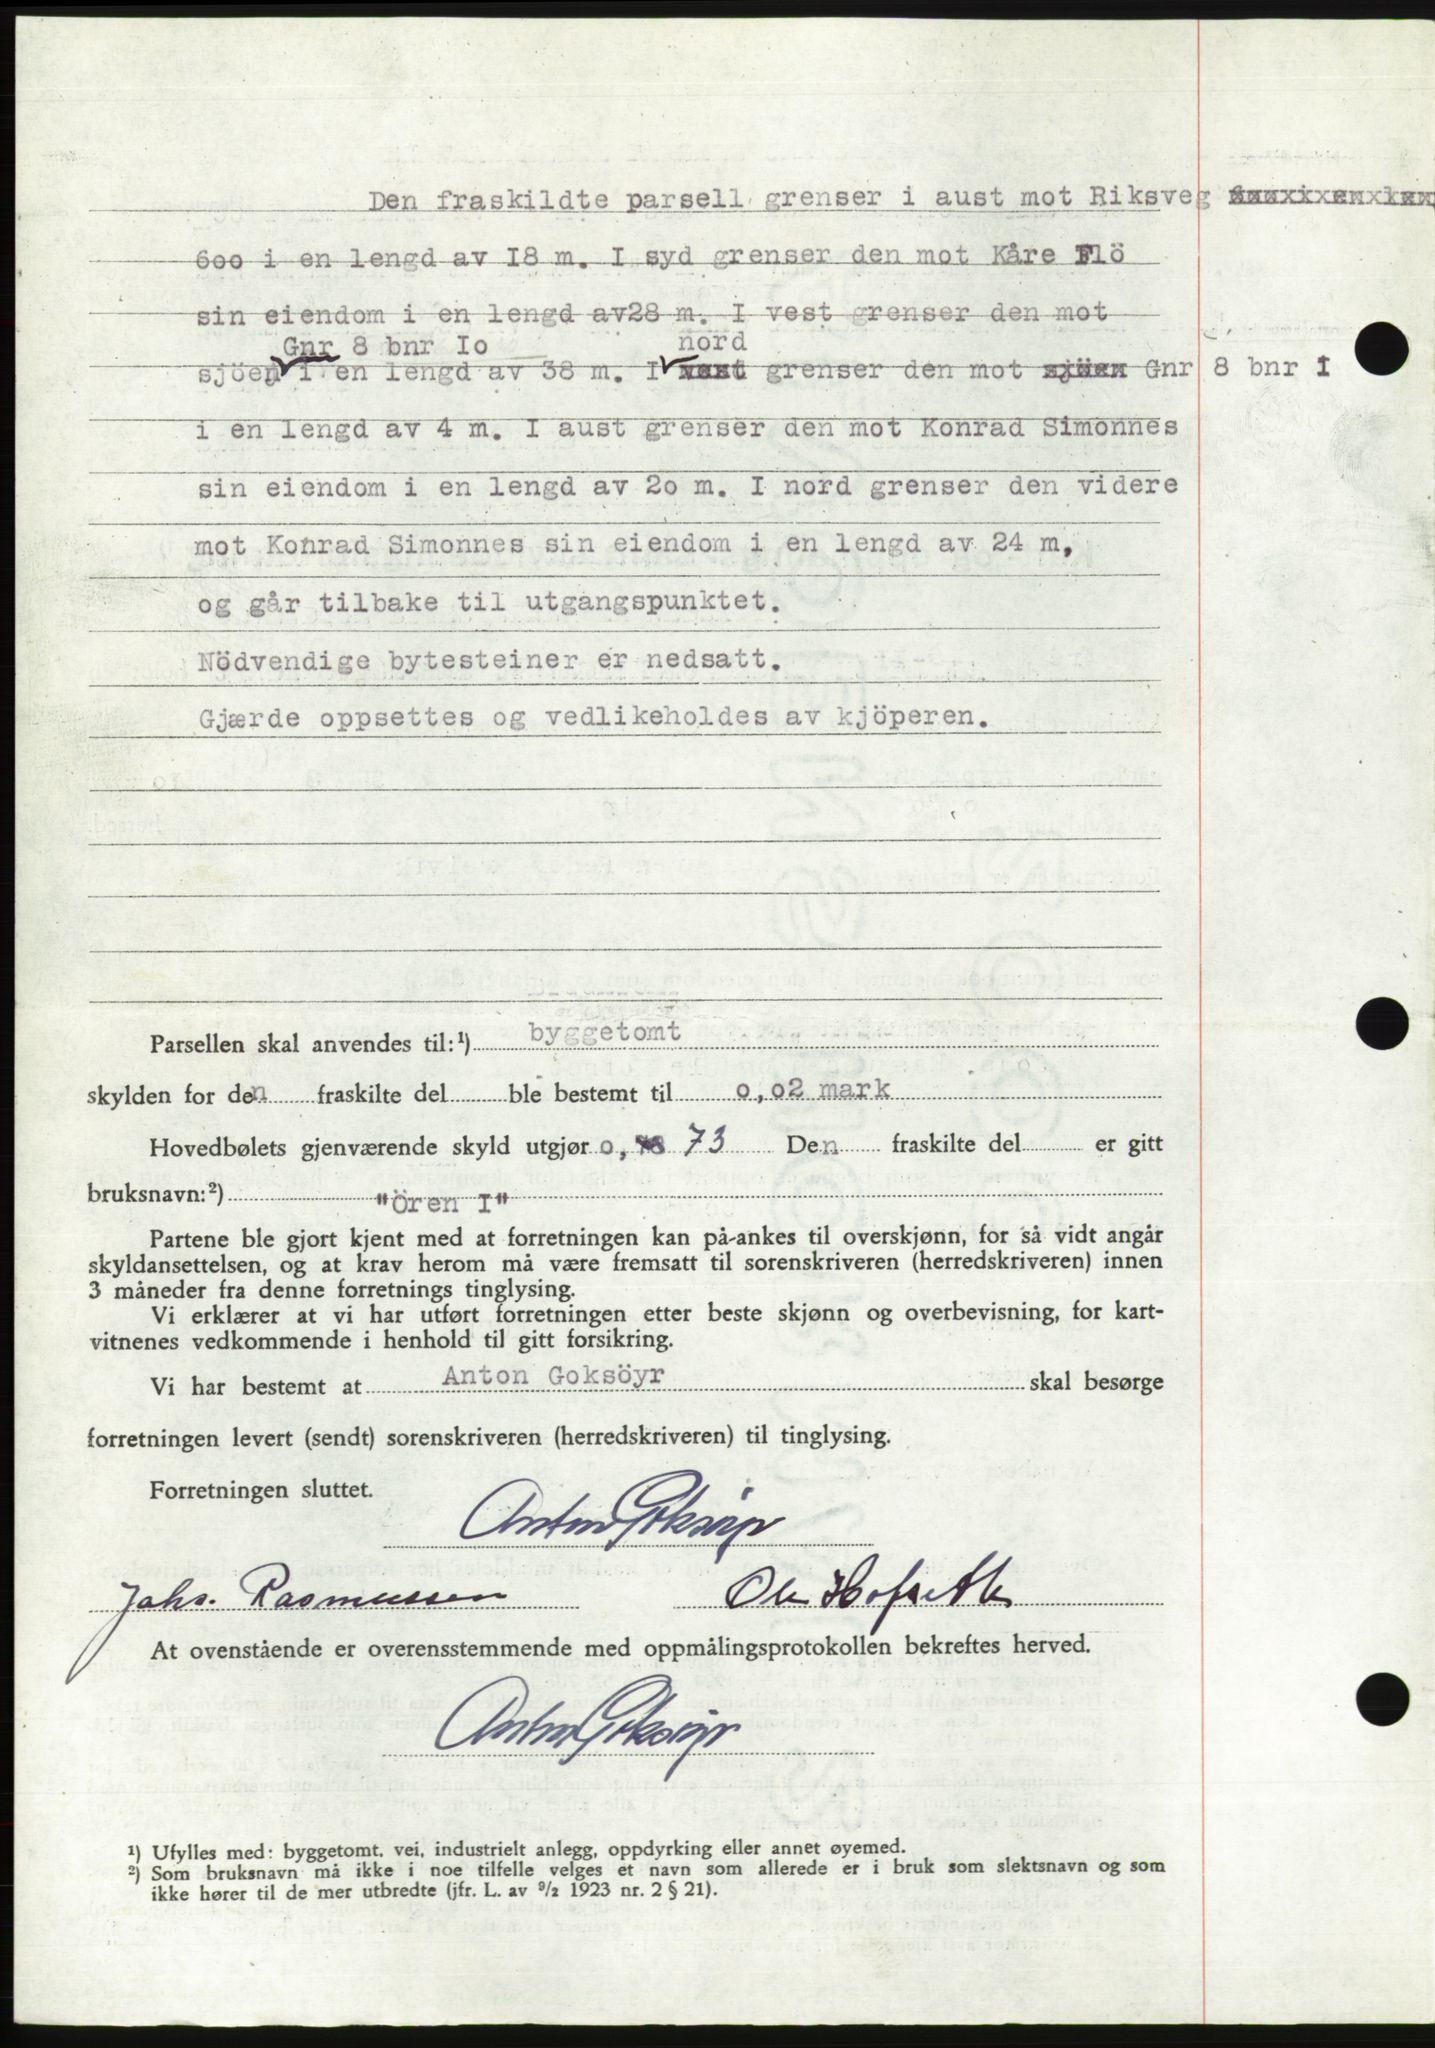 Den fraskildte parsell grenser i aust mot Riksveg
600 i en lengd av I8 m. I syd grenser den mot Kåre Flö
sin eiendom i en lengd av28 m. I vest grenser den mot
Gnr 8 bnr Io nord
sjöen i en lengd av 38 m. I vest grenser den mot sjöen Gnr 8 bnr I
i en lengd av 4 m. I aust grenser den mot Konrad Simonnes
sin eiendom i en lengd av 2o m. I nord grenser den videre
mot Konrad Simonnes sin eiendom i en lengd av 24 m,
og går tilbake til utgangspunktet.
Nödvendige bytesteiner er nedsatt.
Gjærde oppsettes og vedlikeholdes av kjöperen.
Parsellen skal anvendes til:¹) byggetomt
skylden for den fraskilte del ble bestemt til o,o2 mark
Hovedbølets gjenværende skyld utgjør o, 73 Den fraskilte del er gitt
bruksnavn:²) "Ören I"
Partene ble gjort kjent med at forretningen kan på-ankes til overskjønn, for så vidt angår
skyldansettelsen, og at krav herom må være fremsatt til sorenskriveren (herredskriveren) innen
3 måneder fra denne forretnings tinglysing.
Vi erklærer at vi har utført forretningen etter beste skjønn og overbevisning, for kart-
vitnenes vedkommende i henhold til gitt forsikring.
Vi har bestemt at Anton Goksöyr skal besørge
forretningen levert (sendt) sorenskriveren (herredskriveren) til tinglysing.
Forretningen sluttet.
Anton Goksöyr
Johs. Rasmussen Ole Hofseth
At ovenstående er overensstemmende med oppmålingsprotokollen bekreftes herved.
Anton Goksöyr
¹) Ufylles med: byggetomt, vei, industrielt anlegg, oppdyrking eller annet øyemed.
²) Som bruksnavn må ikke i noe tilfelle velges et navn som allerede er i bruk som slektsnavn og som
ikke hører til de mer utbredte (jfr. L. av 9/2 1923 nr. 2 § 21).